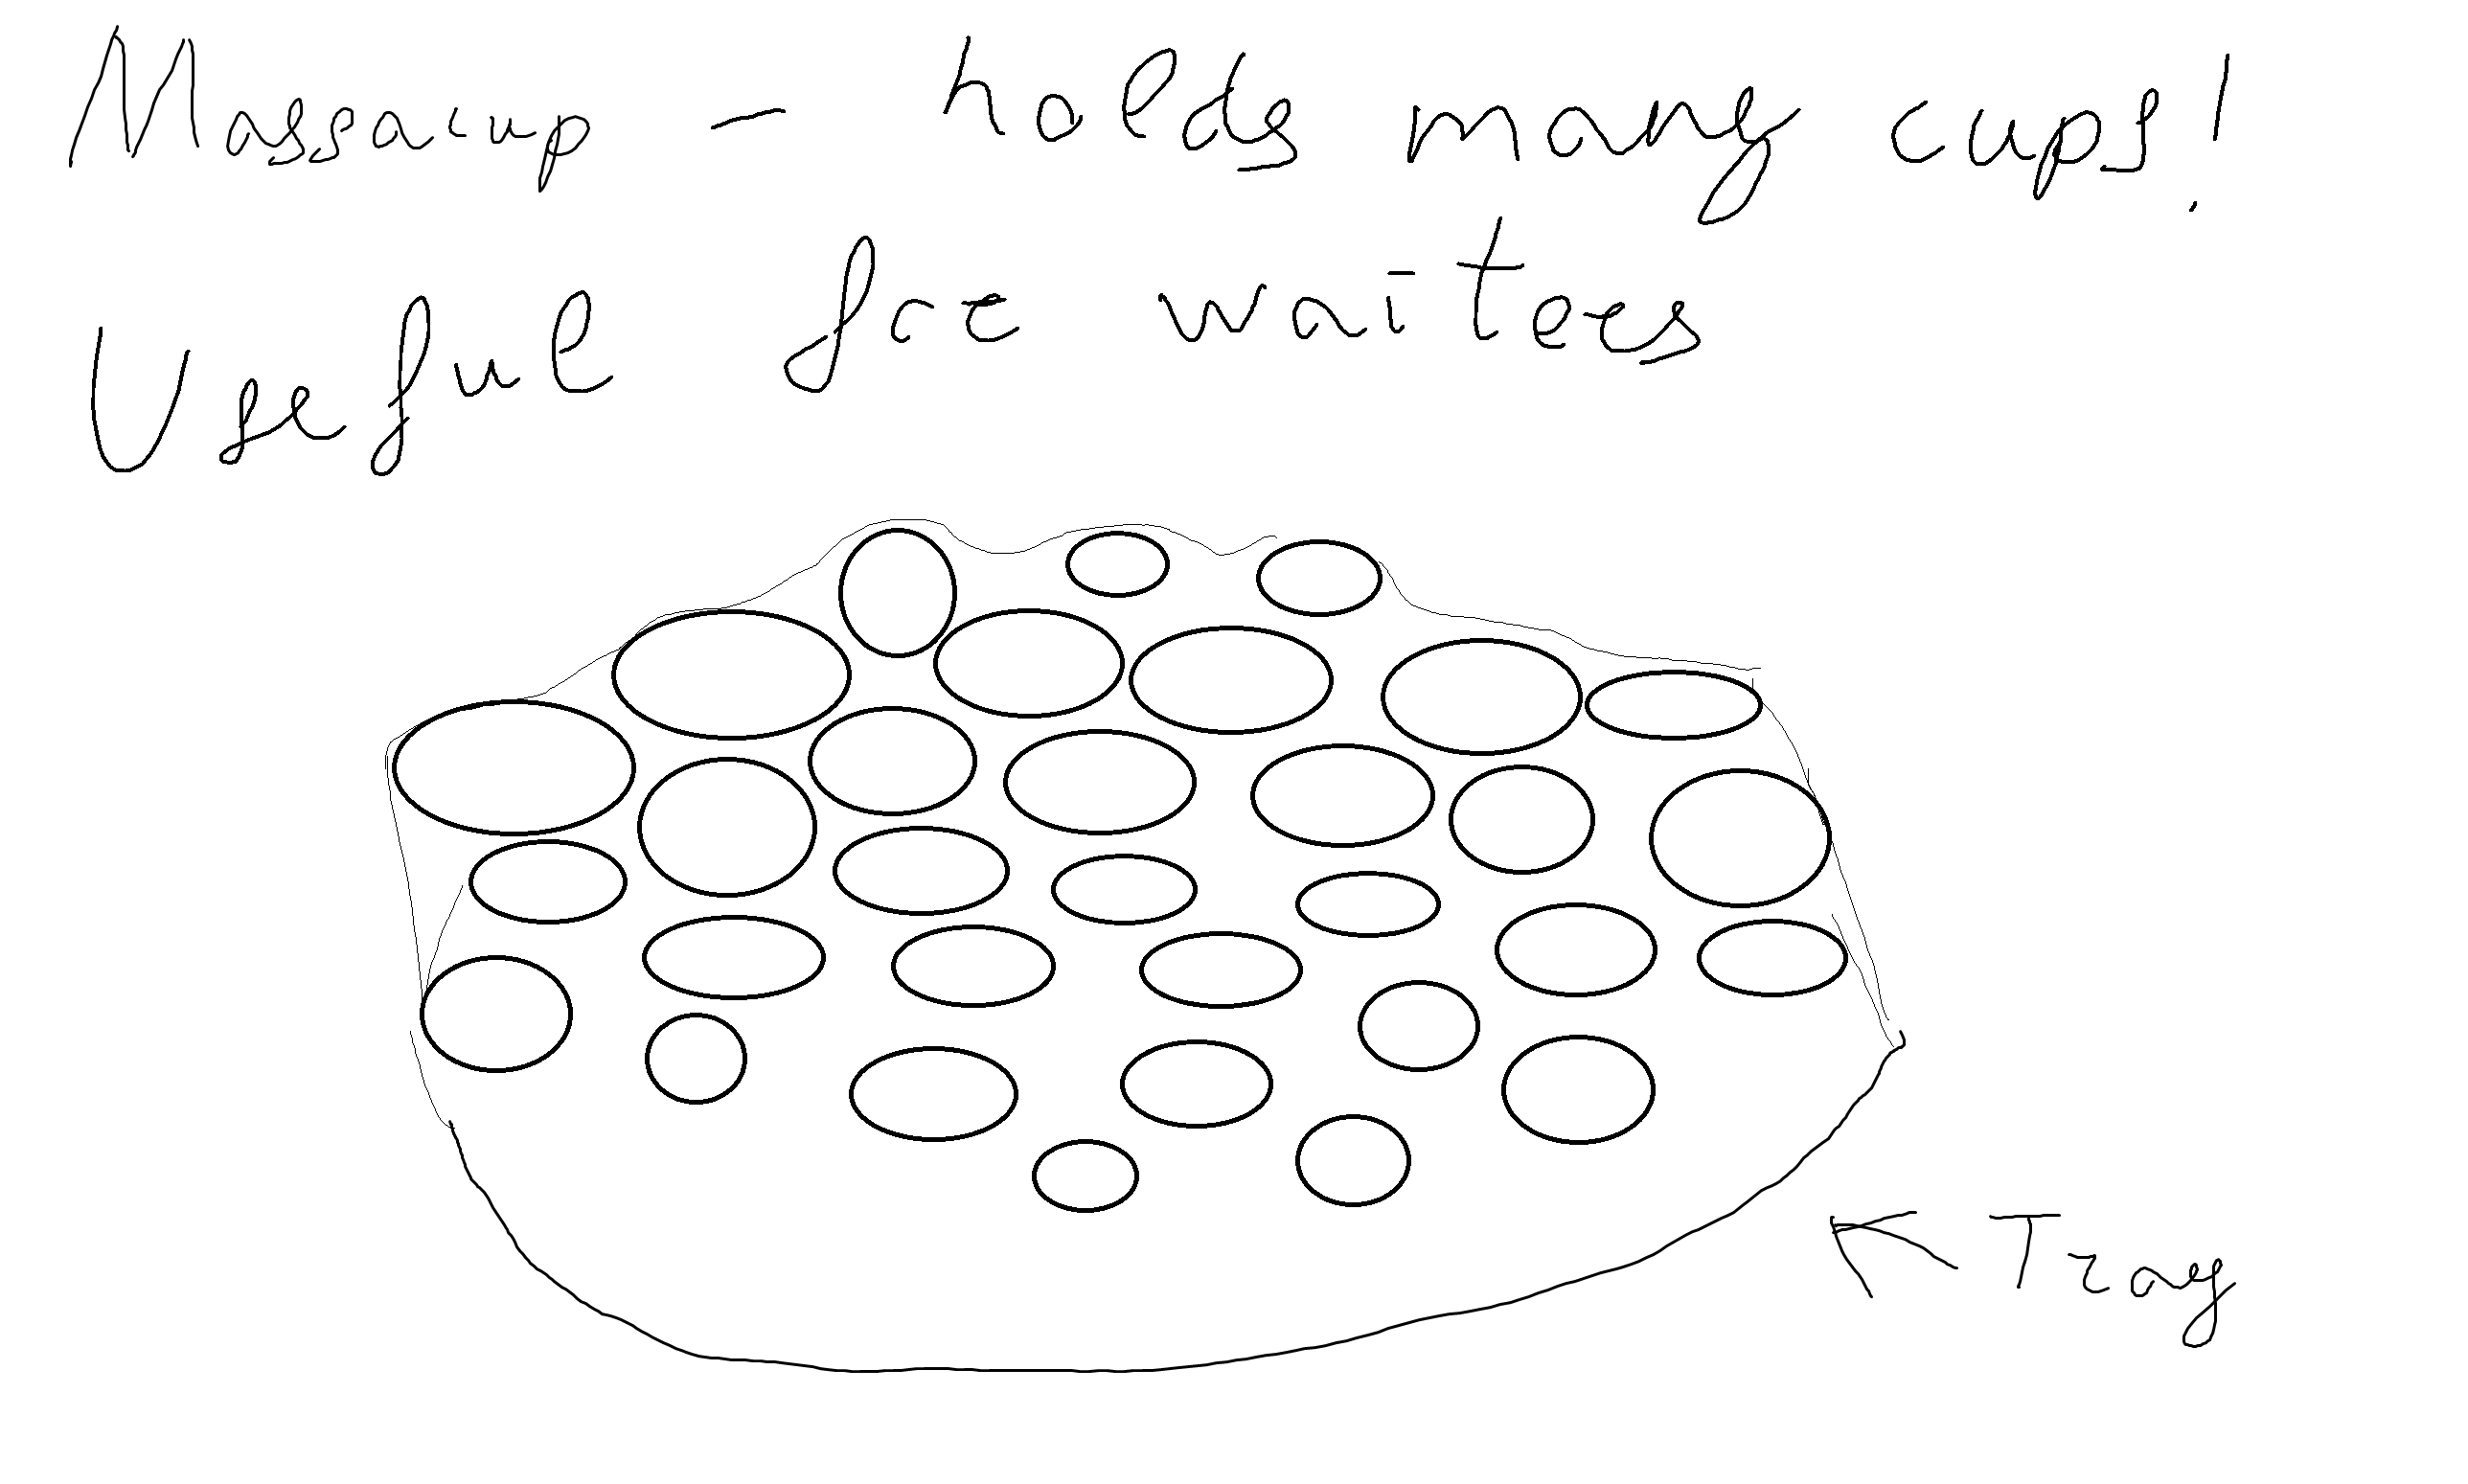 Massacup - holds many cups!
Useful for waiters
Tray